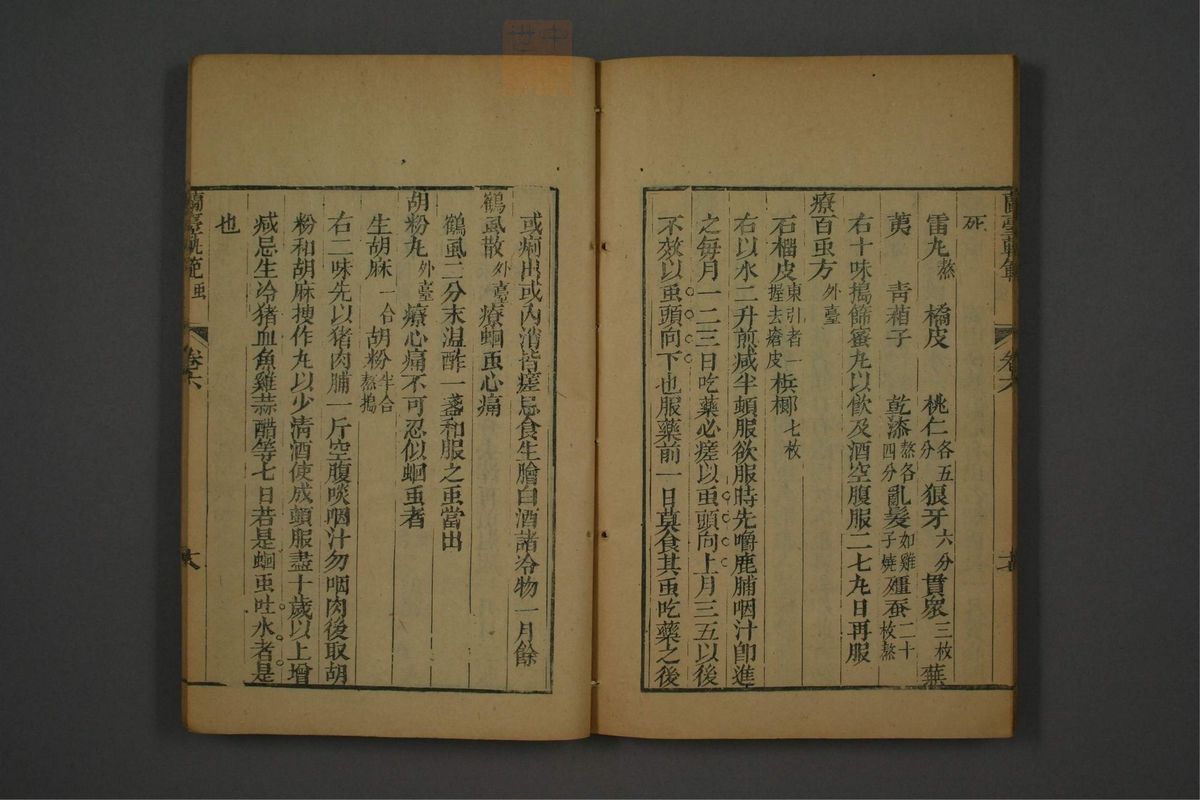 死
雷丸熬 橘皮 桃仁各五分 狼牙六分 貫衆三枚 蕪
荑 青葙子 乾漆熬各四分 亂髮如雞子燒 殭蚕二十枚熬
右十味搗篩蜜丸以飲及酒空腹服二七丸日再服
療百虫方外臺
石榴皮東引者一握去瘡皮 梹榔七枚
右以水二升煎減半頓服欲服時先嚼鹿脯咽汁卽進
之每月一二三日吃藥必瘥以虫頭向上月三五以後
不效以虫頭向下也服藥前一日莫食其虫吃藥之後
或痢出或內消皆瘥忌食生膾白酒諸冷物一月餘
鶴虱散外臺 療蛔虫心痛
鶴虱二分末温酢一盞和服之虫當出
胡粉丸外臺 療心痛不可忍似蛔虫者
生胡麻一合 胡粉半合熬搗
右二味先以猪肉脯一斤空腹啖咽汁勿咽肉後取胡
粉和胡麻捜作丸以少淸酒使成頓服盡十歲以上增
减忌生冷猪血魚雞蒜醋等七日若是蛔虫吐水者是
也
蘭臺軌範 虫
卷六